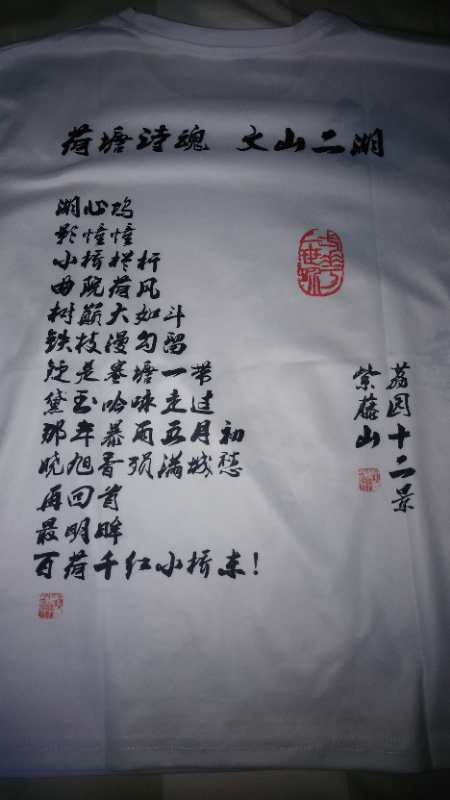 荷塘诗魂 文山二湖
湖心鸣
影憧憧
小桥栏杆
曲院荷风
树巅大如斗
铁枝漫勾留
疑是寒塘一带
黛玉吟咏走过
那年暴雨五月初
晓旭香殒满城愁
再回首
最明眸
百荷千红小桥东!
荔园十二景
紫藤山